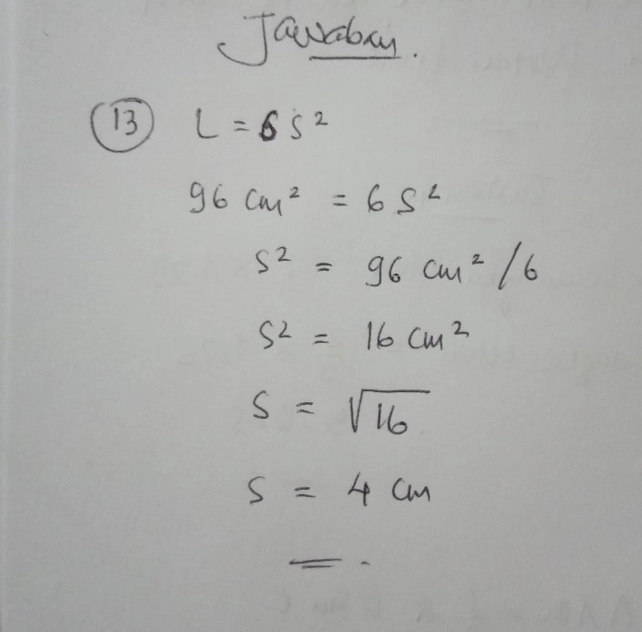 Jawaban.
13 L = 6 s²
96 cm² = 6 s²
s² = 96 cm² / 6
s² = 16 cm²
s = √16
s = 4 cm